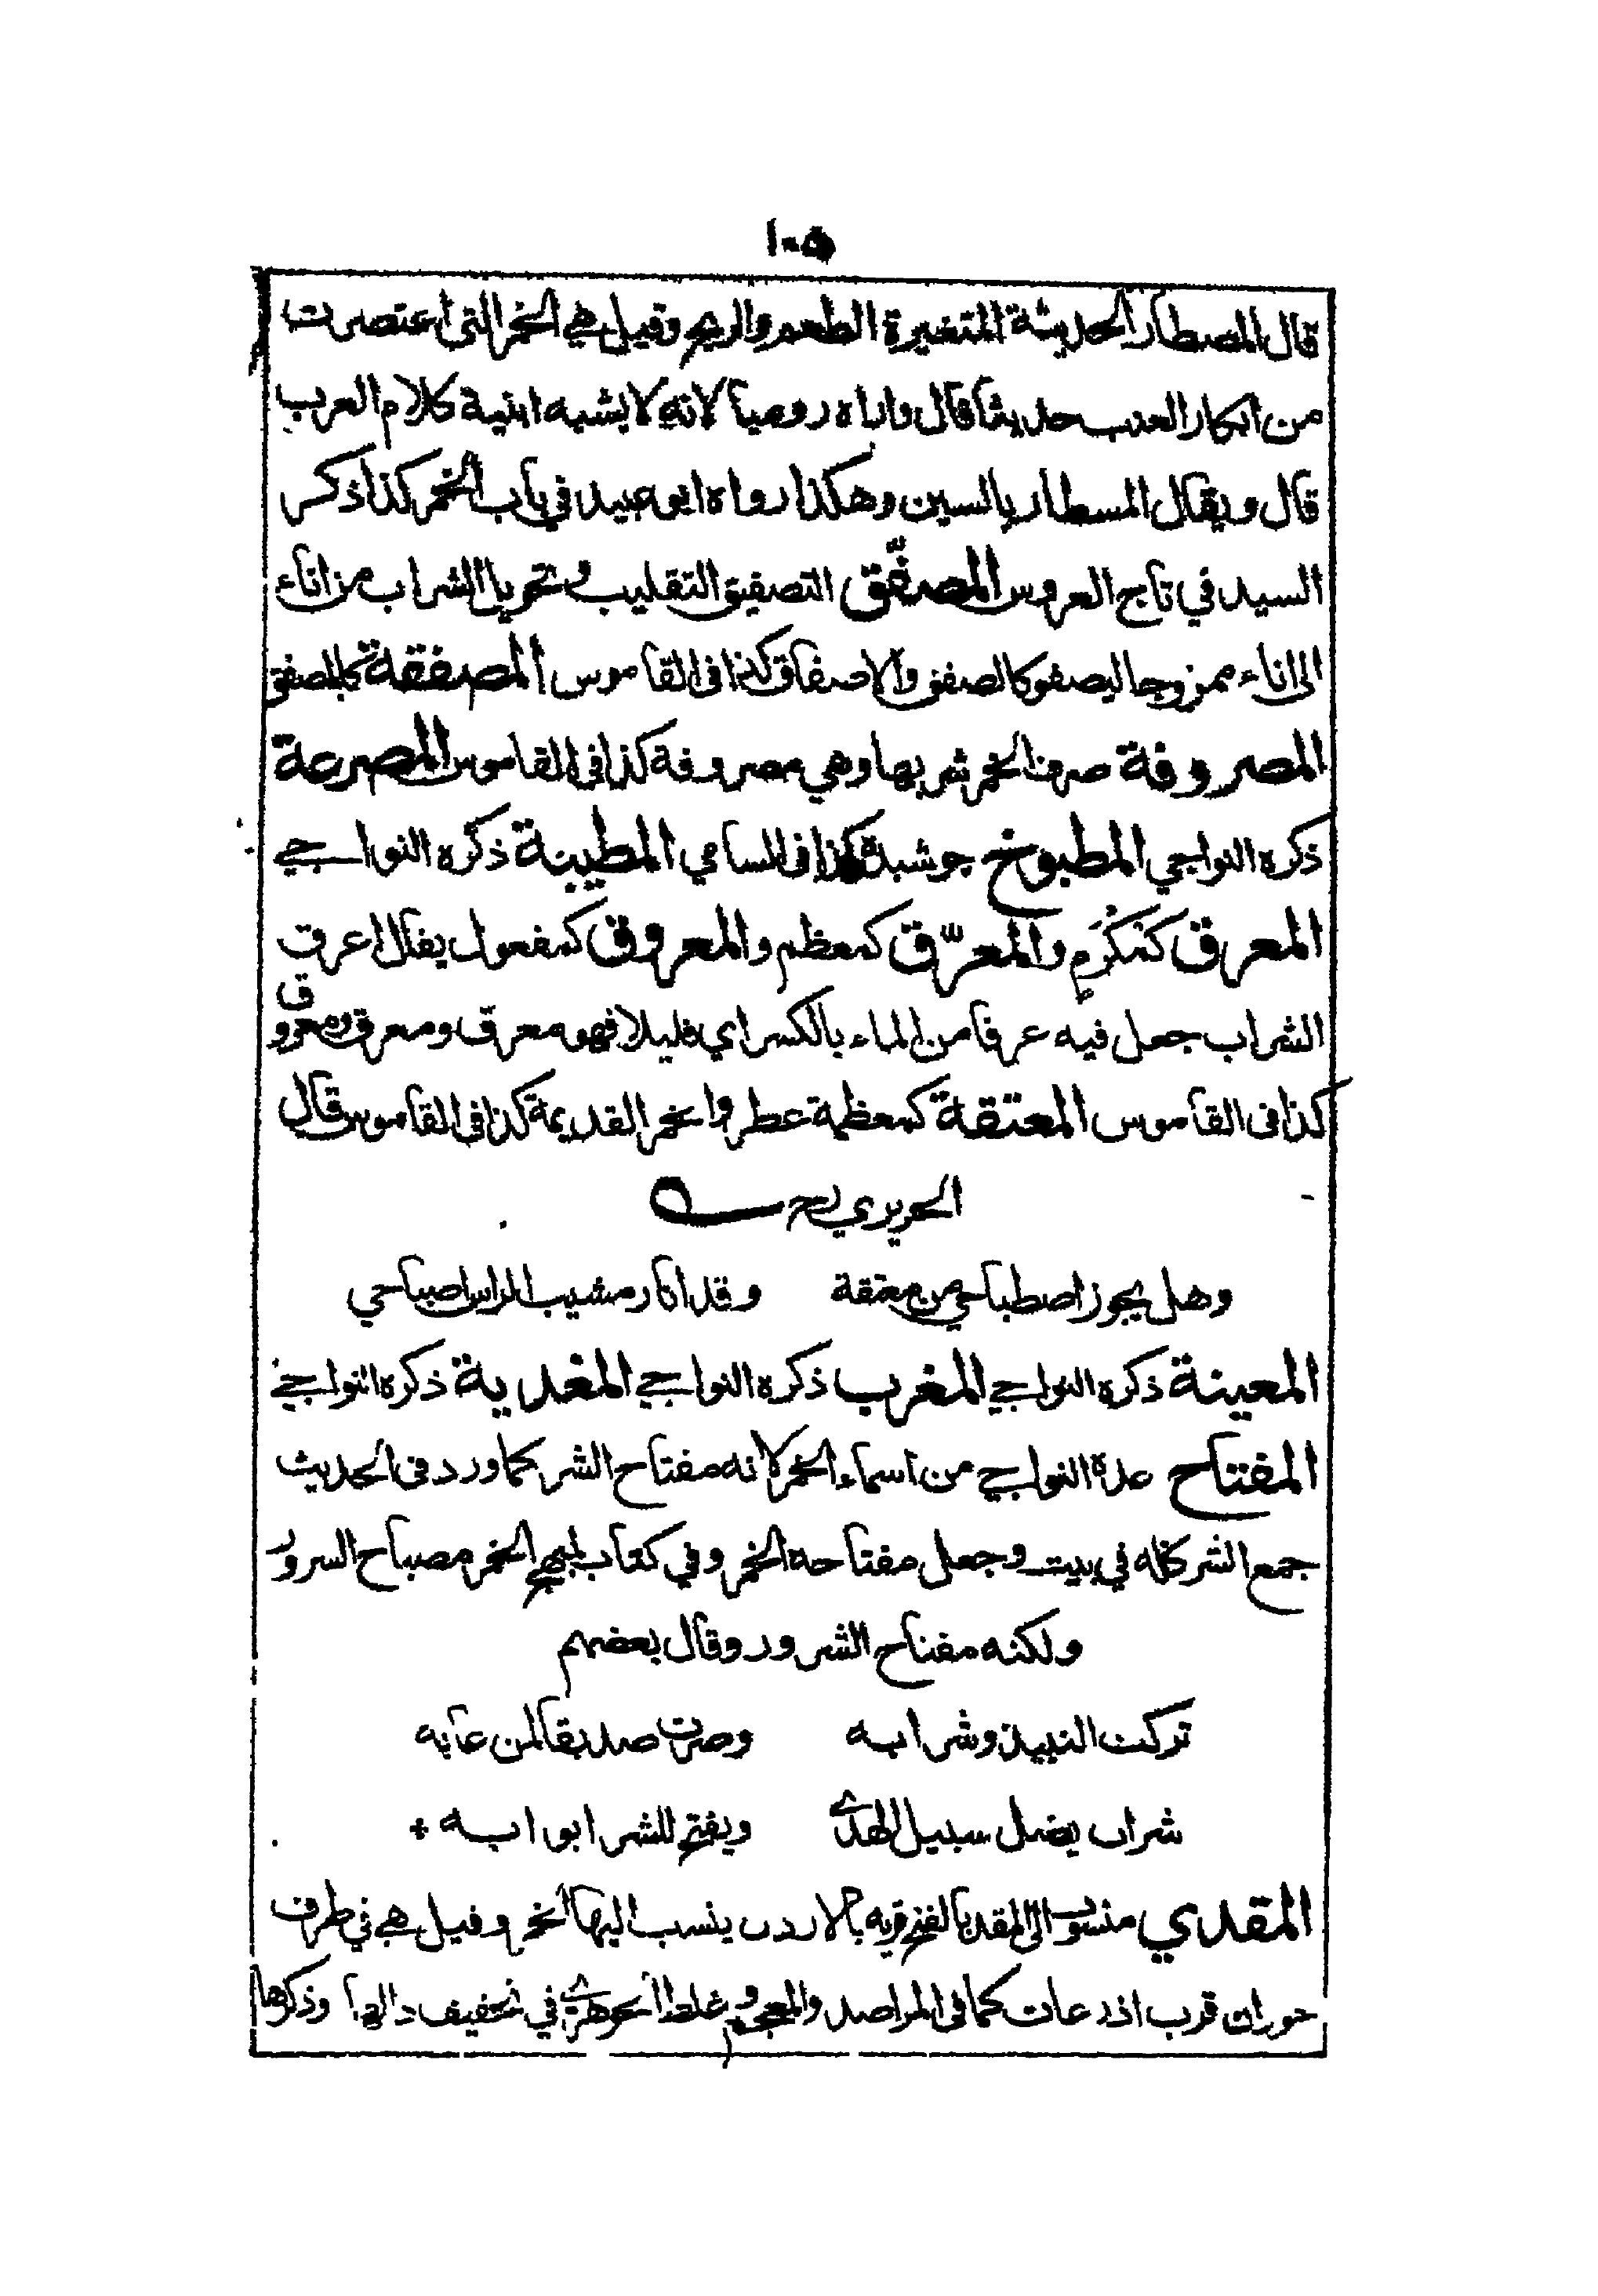 ١٠٥
قال المصطار الحديثة المتغيرة الطعم والريح وقيل هي الخمر التي اعتصرت
من ابكار العنب حديثا قال واراه روميا لانه لا يشبه ابنية كلام العرب
قال ويقال المسطار بالسين وهكذا رواه ابو عبيد في باب الخمر كذا ذكر
السيد في تاج العروس المصفّق التصفيق التقليب وتحويل الشراب من اناء
الى اناء ممزوجا ليصفو كالصفق والاصفاق كذا في القاموس المصفقة كالمصفق
المصروفة صرف الخمر شربها وهي مصروفة كذا في القاموس المصرعة
ذكره النواجي المطبوخ جوشيدة كذا في السامي المطيبنة ذكره النواجي
المعرق كمكرم والمعرّق كمعظم والمعروق كمفعول يقال اعرق
الشراب جعل فيه عرقا من الماء بالكسر اي قليلا فهو معرق ومعرق ومعروق
كذا في القاموس المعتقة كمعظمة عطر والخمر القديمة كذا في القاموس قال
الحريري رح
وهل يجوز اصطباحي من معتقة وقد انار مشيب الراس اصباحي
المعينة ذكره النواجي المغرب ذكره النواجي المغدية ذكره النواجي
المفتاح عده النواجي من اسماء الخمر لانه مفتاح الشر كما ورد في الحديث
جمع الشر كله في بيت وجعل مفتاحه الخمر وفي كتاب المبهج الخمر مصباح السرور
ولكنه مفتاح الشرور وقال بعضهم
تركت النبيذ وشرابه وصرت صديقا لمن عابه
شراب يضل سبيل الهدى ويفتح للشر ابوابه +
المقدي منسوب الى المقد بالفتح قرية بالاردن ينسب اليها الخمر وقيل هي في طرف
حوران قرب اذرعات كما في المراصد والمعجم وغلط الجوهري في تخفيف دالها وذكرها